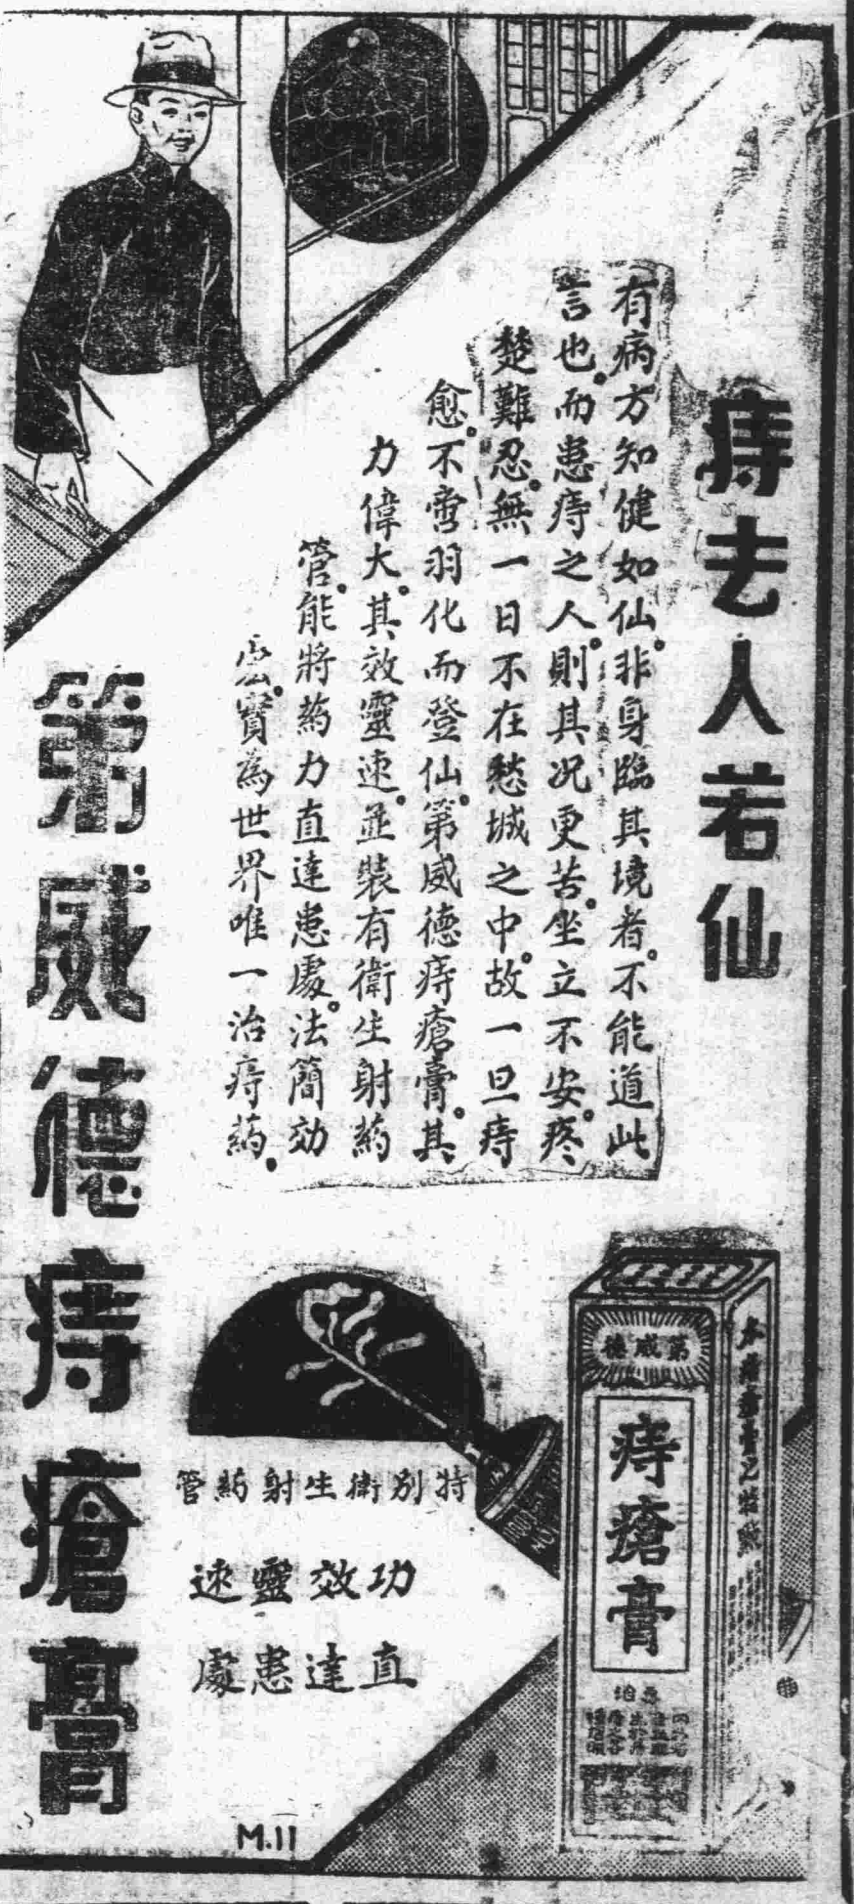 痔去人若仙
有病方知健如仙。非身臨其境者。不能道此
言也。而患痔之人。則其況更苦。坐立不安。疼
楚難忍。無一日不在愁城之中。故一旦痔
愈。不啻羽化而登仙。第威德痔瘡膏。其
力偉大。其效靈速。並裝有衛生射葯
管。能將葯力直達患處。法簡効
宏。實為世界唯一治痔葯。
第威德痔瘡膏
特別衛生射葯管
功效靈速
直達患處
第威德
痔瘡膏
本痔瘡膏之特點
M.11